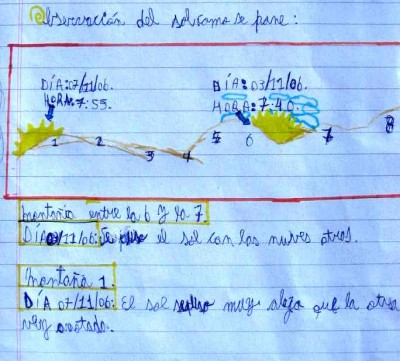 Observación del sol como se pone:
DÍA: 07/11/06.
HORA: 7:55.
DÍA: 03/11/06.
HORA: 7:40.
1 2 3 4 5 6 7 8
montaña entre la 6 y la 7
DÍA 03/11/06: Se puso el sol con las nuves atras.
montaña 1.
DÍA 07/11/06: El sol se puso muy alejo que la otra
vez anotada.